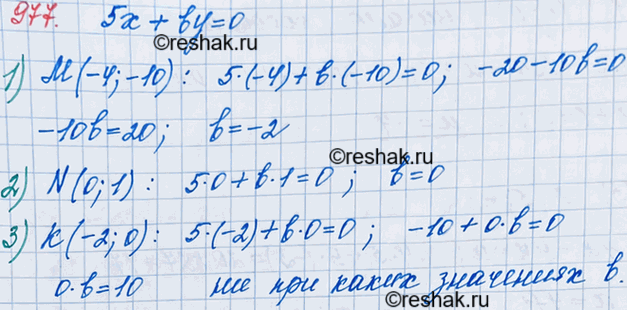 977. 5x + by = 0
©reshak.ru
1) M(-4; -10) : 5·(-4) + b·(-10) = 0; -20 - 10b = 0
-10b = 20; b = -2
©reshak.ru
2) N(0; 1) : 5·0 + b·1 = 0; b = 0
3) K(-2; 0) : 5·(-2) + b·0 = 0; -10 + 0·b = 0
0·b = 10 ни при каких значениях b.
©reshak.ru